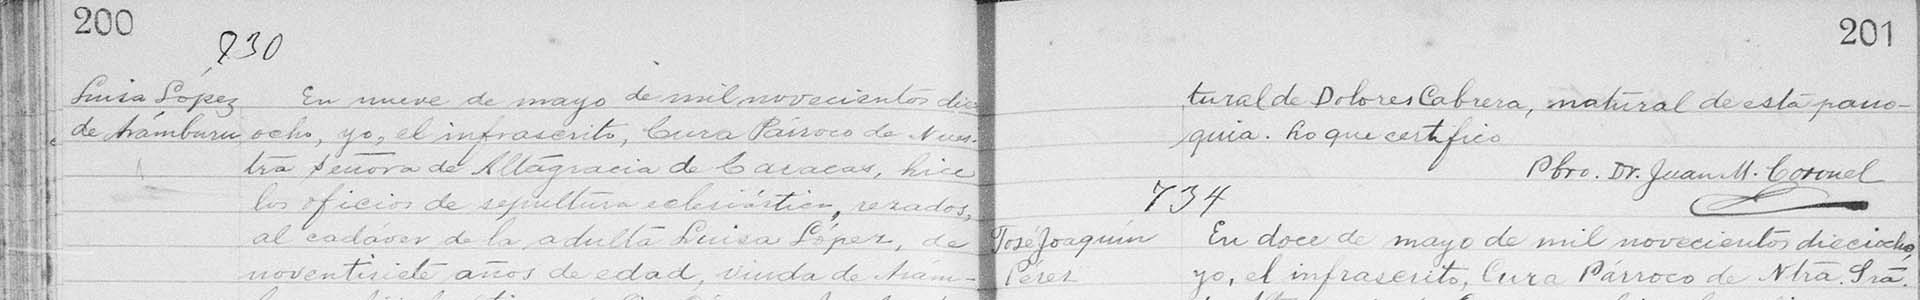 200
730
Luisa López
de Arámburu
En nueve de mayo de mil novecientos die
ocho, yo, el infrascrito, Cura Párroco de Nues-
tra Señora de Altagracia de Caracas, hice
los oficios de sepultura eclesiástica, rezados,
al cadáver de la adulta Luisa López, de
noventisiete años de edad, viuda de Arám-
201
tural de Dolores Cabrera, natural de esta parro-
quia. Lo que certifico
Pbro. Dr. Juan M. Coronel
734
José Joaquín
Pérez
En doce de mayo de mil novecientos dieciocho,
yo, el infrascrito, Cura Párroco de Ntra. Sra.